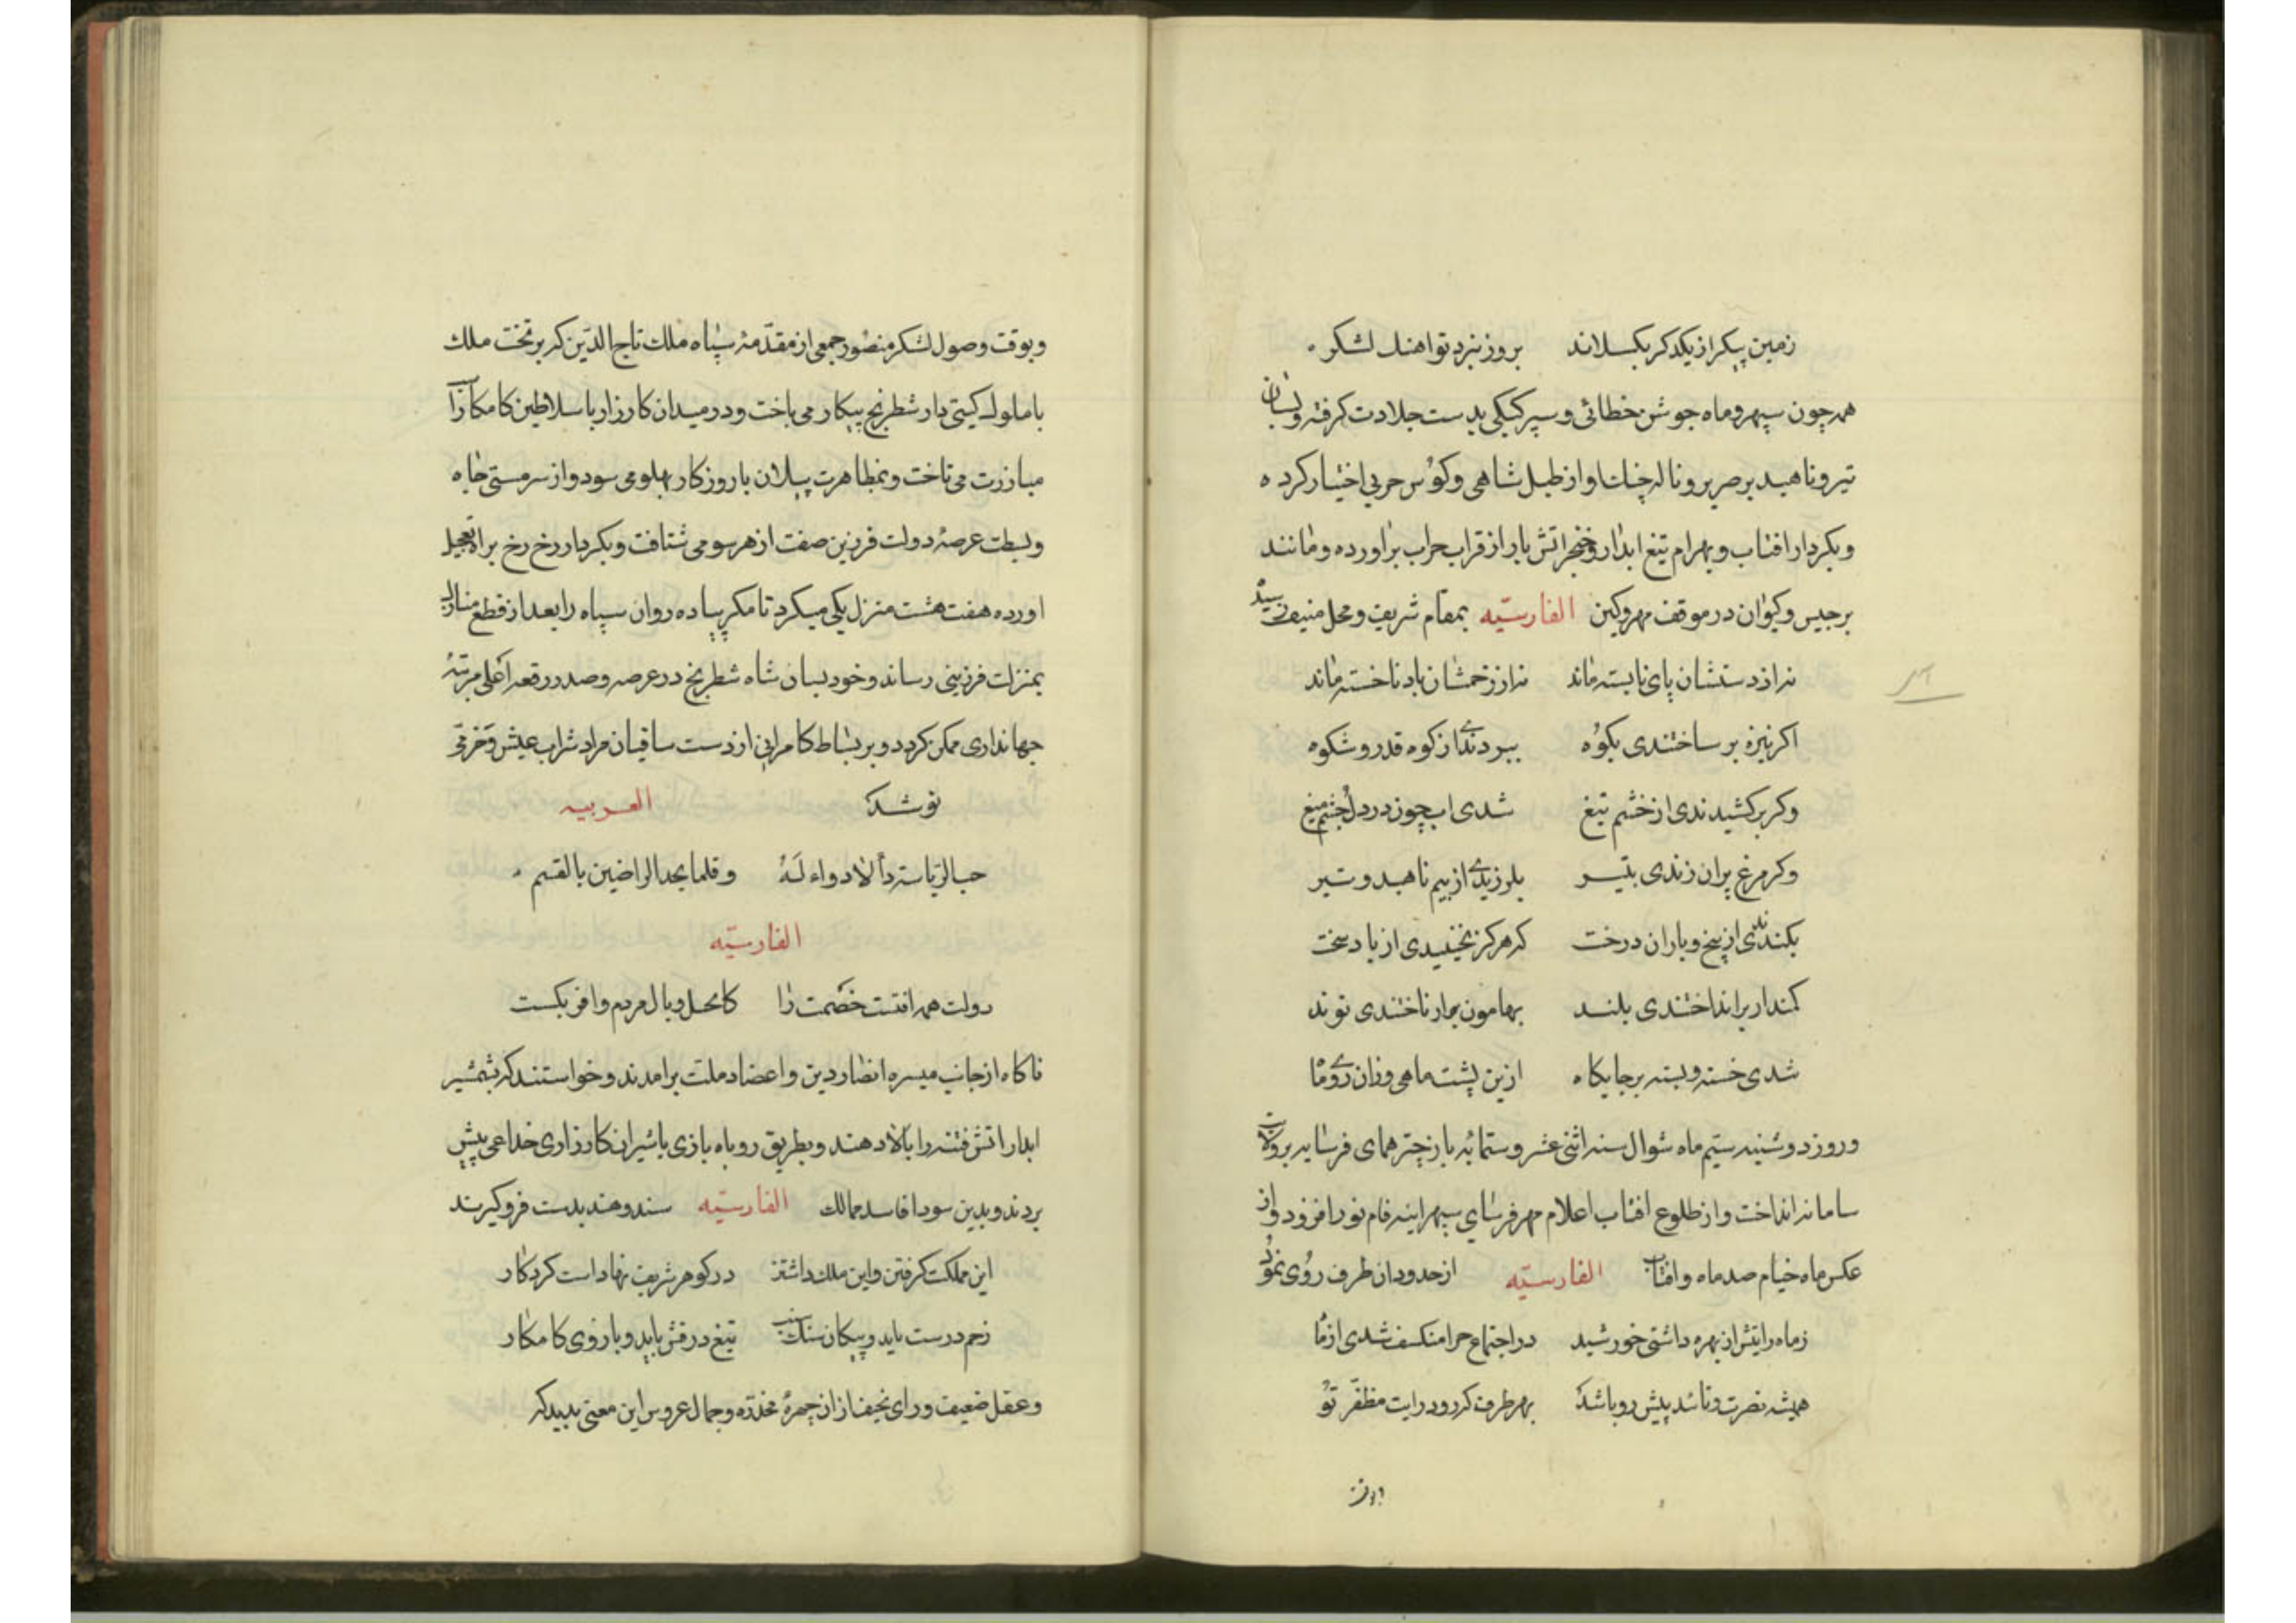 زمین پیکر از یکدکر بکسلاند بروز نبرد تو اهنك لشکر
همه چون سپهر و ماه جوشن خطائی و سپر کیکی بدست جلادت کرفته و بسان
تیر و ناهید بر صریر و ناله چنك اواز طبل شاهی و کوس حربی اختیار کرده
و بکردار افتاب و بهرام تیغ ابدار و خنجر اتش بار از قراب حراب براورده و مانند
برجیس و کیوان در موقف مهر و کین الفارسیّه بمقام شریف و محل منیف رسید
نه از دستشان پای نابسته ماند نه از زخمشان باد ناخسته ماند
اکر نیزه بر ساختندی بکوه ببردندی از کوه قدر و شکوه
وکر برکشیدندی از خشم تیغ شدی اب چون در دل چشم میغ
وکر مرغ پران زندی بتیر بلرزیدی از بیم ناهید و تیر
بکندندی از بیخ و باران درخت که هرکز نخنبیدی از باد سخت
کمند ار برانداختندی بلند بهامون بر ار تاختندی نوند
شدی خسته و بسته بر جایکاه ازین پشت ماهی و زان روی ماه
و روز دوشنبه سیم ماه شوال سنه اثنی عشر و ستمایٔه باز چتر همای فرسایه بر ولایت
سامانه انداخت و از طلوع افتاب اعلام مهر فرسای سپهر اینه فام نور افزود و از
عکس ماه خیام صد ماه و افتاب الفارسیّه از حدود ان طرف روی نمود
ز ماه رایتش ار بهره داشتی خورشید در اجتماع چرا منکسف شدی از ماه
همیشه نصرت و تائید پیش رو باشد بهر طرف که رود رایت مظفّر تو
و بوقت وصول لشکر منصور جمعی از مقدّمهٔ سپاه ملك تاج الدّین که بر تخت ملك
با ملوك کیتی دار شطرنج پیکار می باخت و در میدان کارزار با سلاطین کامکار اسب
مبارزت می تاخت و بمظاهرت پیلان با روزکار پهلو می سود و از سر مستی جاه
و بسطت عرصهٔ دولت فرزین صفت از هر سو می شتافت و بکردار رخ رخ براه تعجیل
اورده هفت هشت منزل یکی میکرد تا مکر پیاده روان سپاه را بعد از قطع منازل
بمنزلت فرزینی رساند و خود بسان شاه شطرنج در عرصه و صدر رقعه اعلی مرتبهٔ
جهانداری ممکن کردد و بر بساط کامرانی از دست ساقیان مراد شراب عیش و خرمی
نوشد العربیه
حب الریاسة داٌ لا دواء لَهُ و قلما یجد الراضین بالقسم
الفارسیّه
دولت همه افتست خصمت را کامحل وبال مردم وافر بکست
ناکاه از جانب میسره انصار دین و اعضاد ملت برامدند و خواستند که بشمشیر
ابدار اتش فتنه را بالا دهند و بطریق روباه بازی با شیران کارزاری خداعی پیش
بردند و بدین سودا فاسد ممالك الفارسیّه سند و هند بدست فرو کیرند
این مملکت کرفتن و این ملك داشتن در کوهر شریف نهاد است کردکار
زخم درست باید و پیکان سنك تیغ درفش باید و بازوی کامکار
و عقل ضعیف و رای نحیف از ان چهرهٔ مخدّره و جمال عروس این معنی بدید که